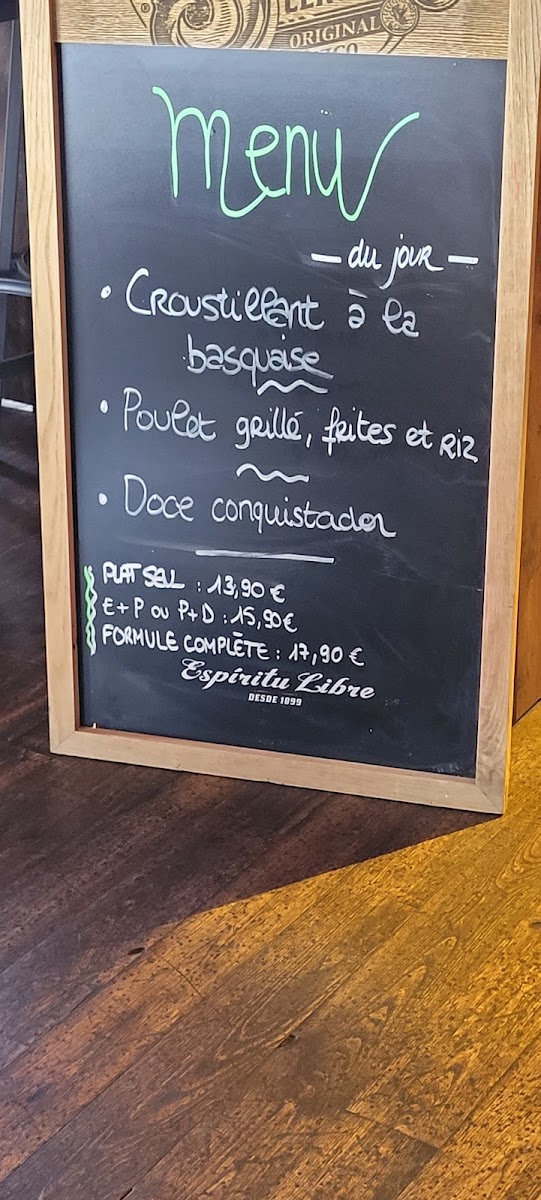 ORIGINAL
Menu
— du jour —
• Croustillant à la
basquaise
• Poulet grillé, frites et Riz
• Doce conquistador
PLAT SEUL : 13,90 €
E + P ou P + D : 15,90 €
FORMULE COMPLÈTE : 17,90 €
Espíritu Libre
DESDE 1899